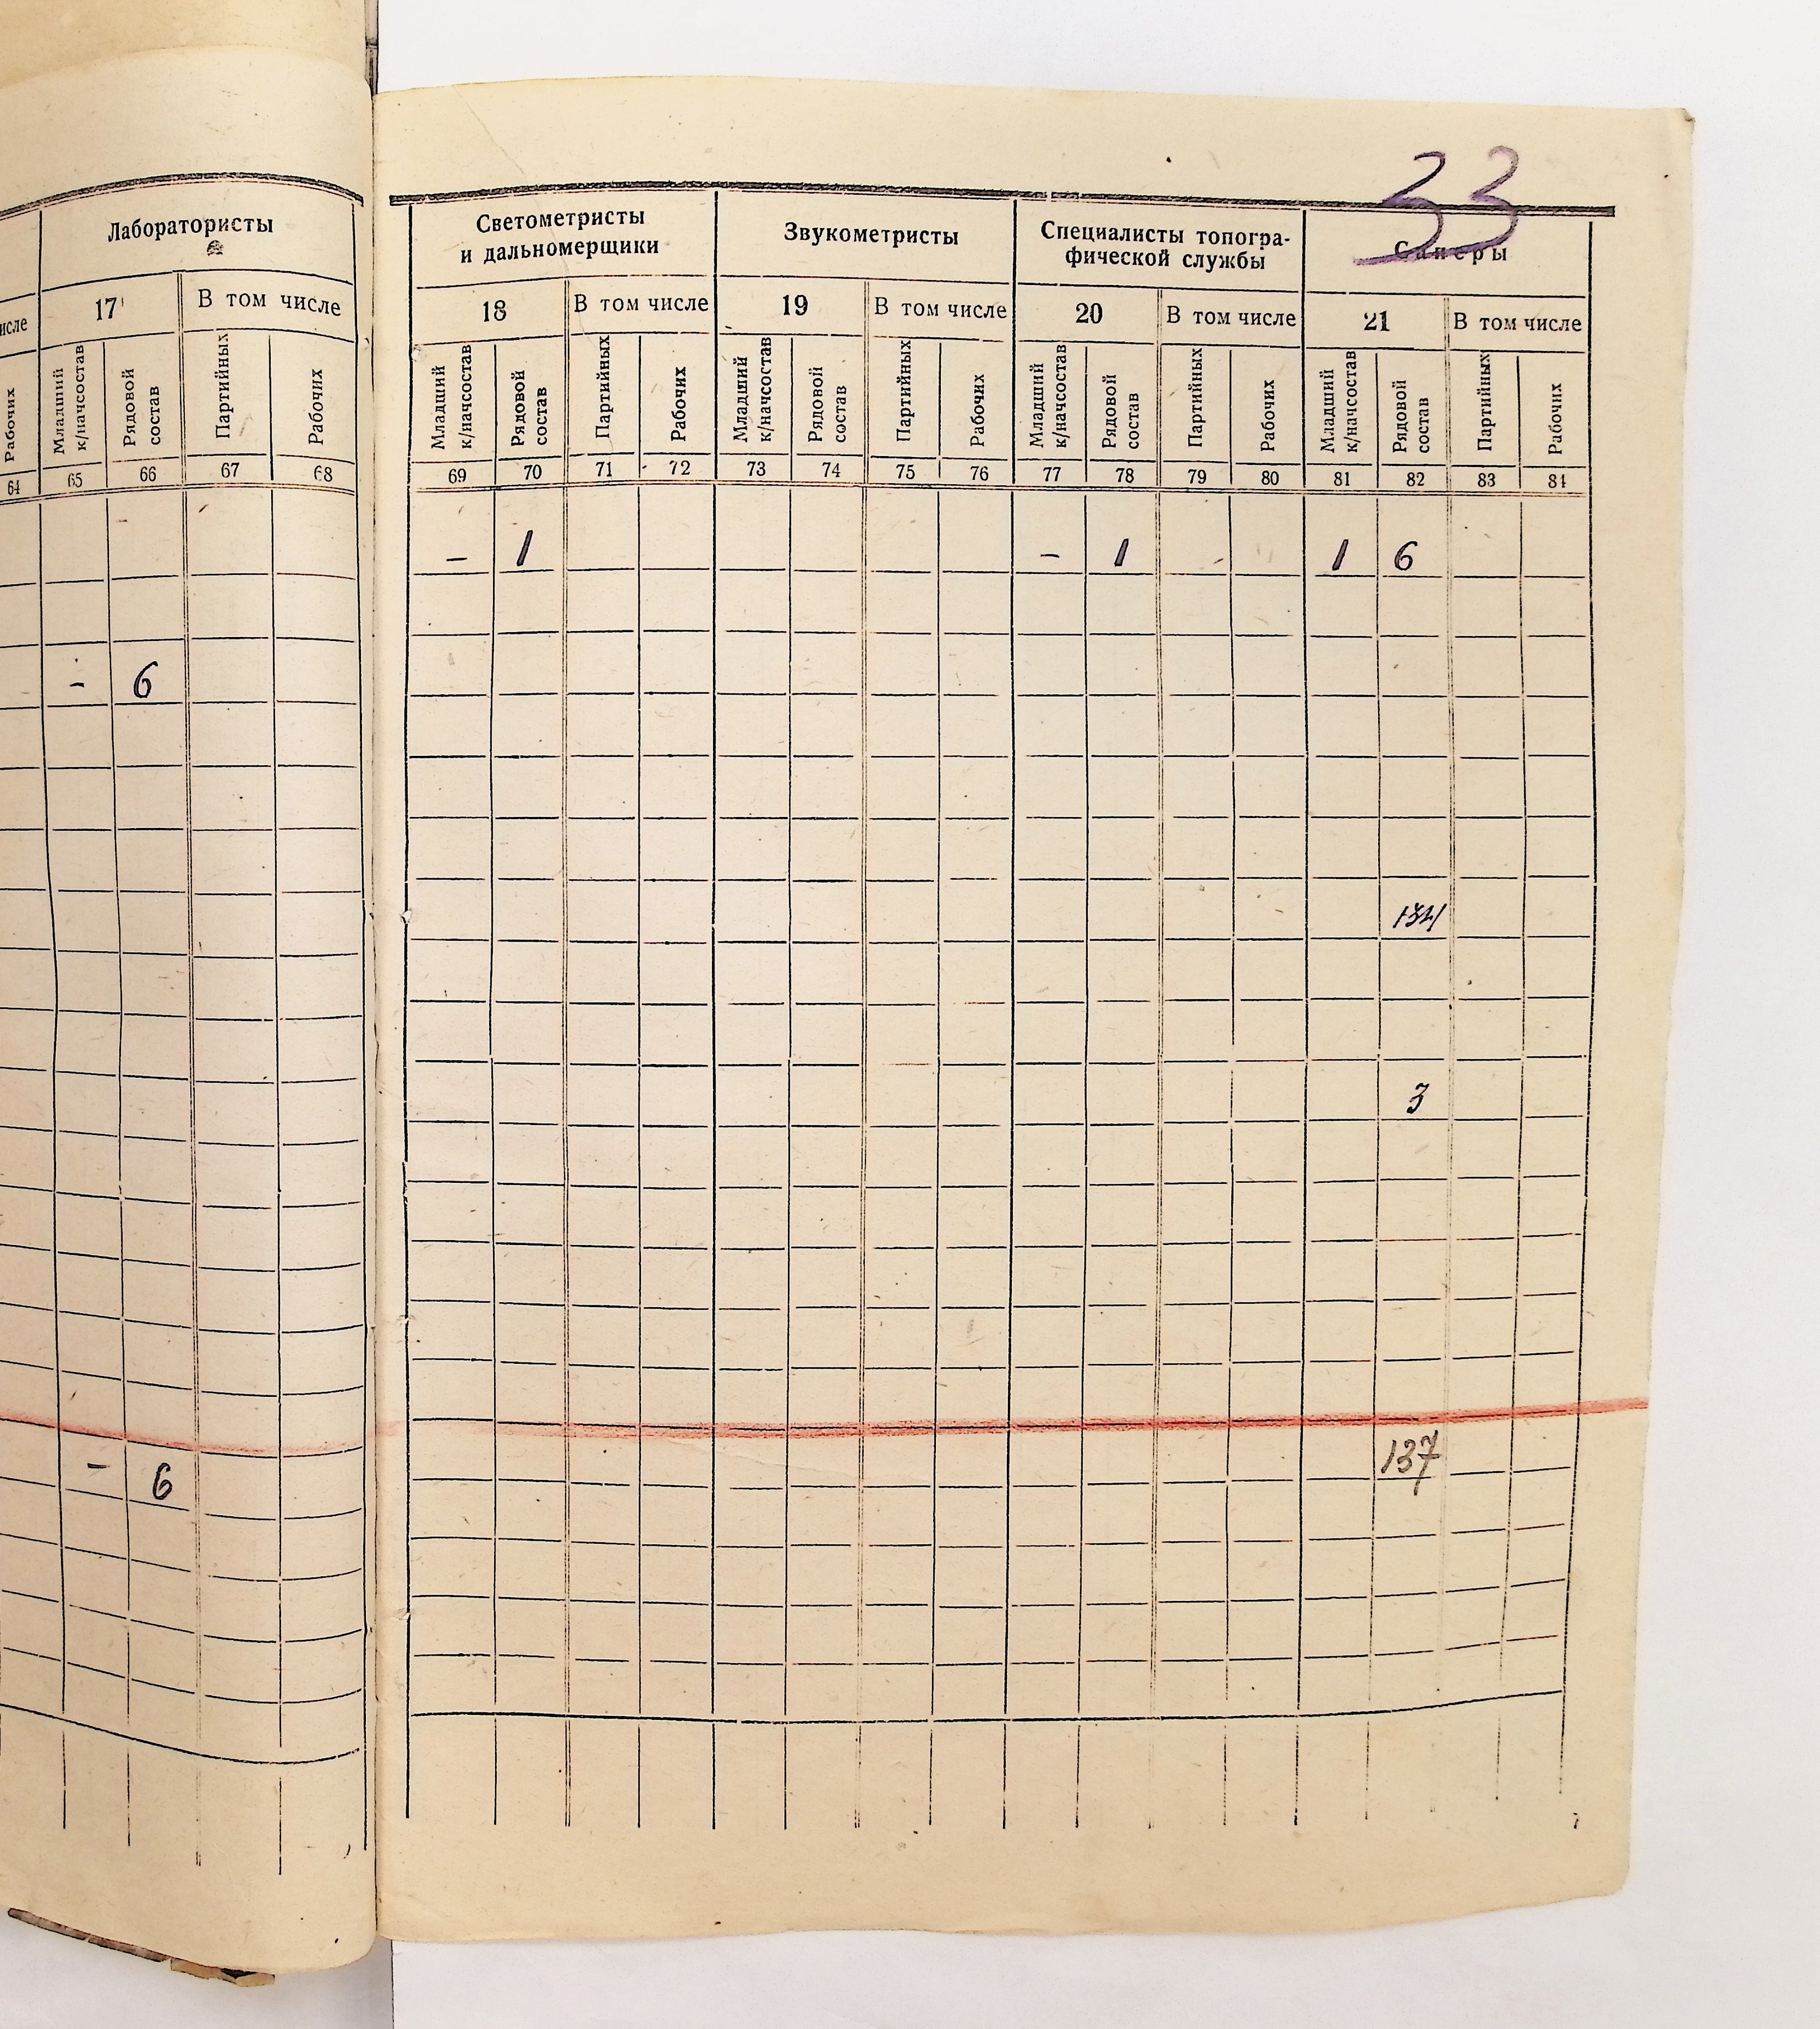 33
Лаборатористы
17
В том числе
исле
Рабочих
Младший к/начсостав
Рядовой состав
Партийных
Рабочих
64 65 66 67 68
- 6
- 6
Светометристы
и дальномерщики
Звукометристы
Специалисты топогра-
фической службы
Саперы
18 В том числе 19 В том числе 20 В том числе 21 В том числе
Младший к/начсостав
Рядовой состав
Партийных
Рабочих
Младший к/начсостав
Рядовой состав
Партийных
Рабочих
Младший к/начсостав
Рядовой состав
Партийных
Рабочих
Младший к/начсостав
Рядовой состав
Партийных
Рабочих
69 70 71 72 73 74 75 76 77 78 79 80 81 82 83 84
- 1 - 1 1 6
134
3
137